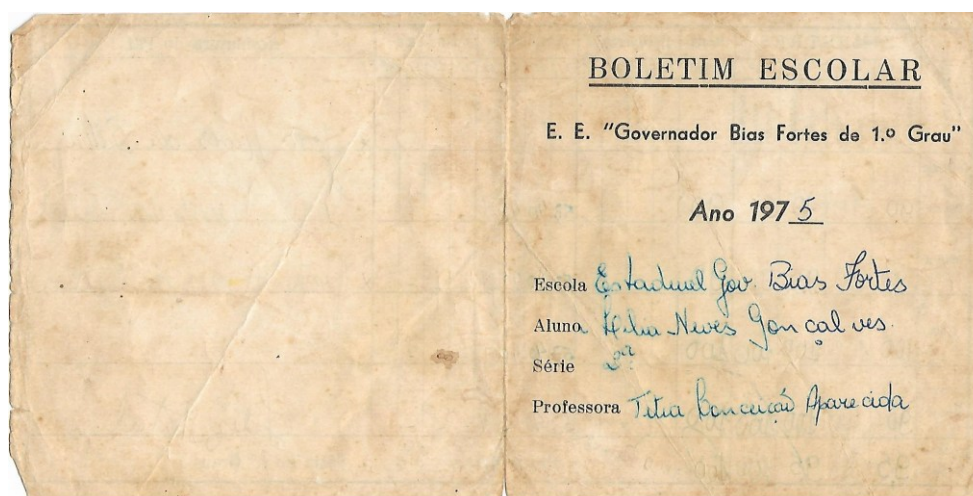 BOLETIM ESCOLAR
E. E. "Governador Bias Fortes de 1.º Grau"
Ano 1975
Escola Estadual Gov. Bias Fortes
Aluna Neves Gonçalves.
Série 2ª
Professora Conceição Aparecida